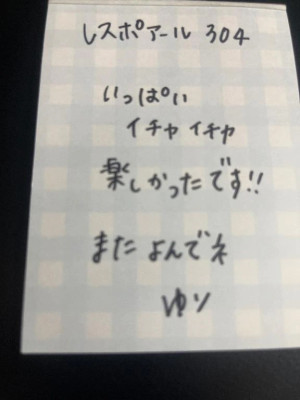 レスポアール 304
いっぱい
イチャイチャ
楽しかったです!!
またよんでネ
ゆリ